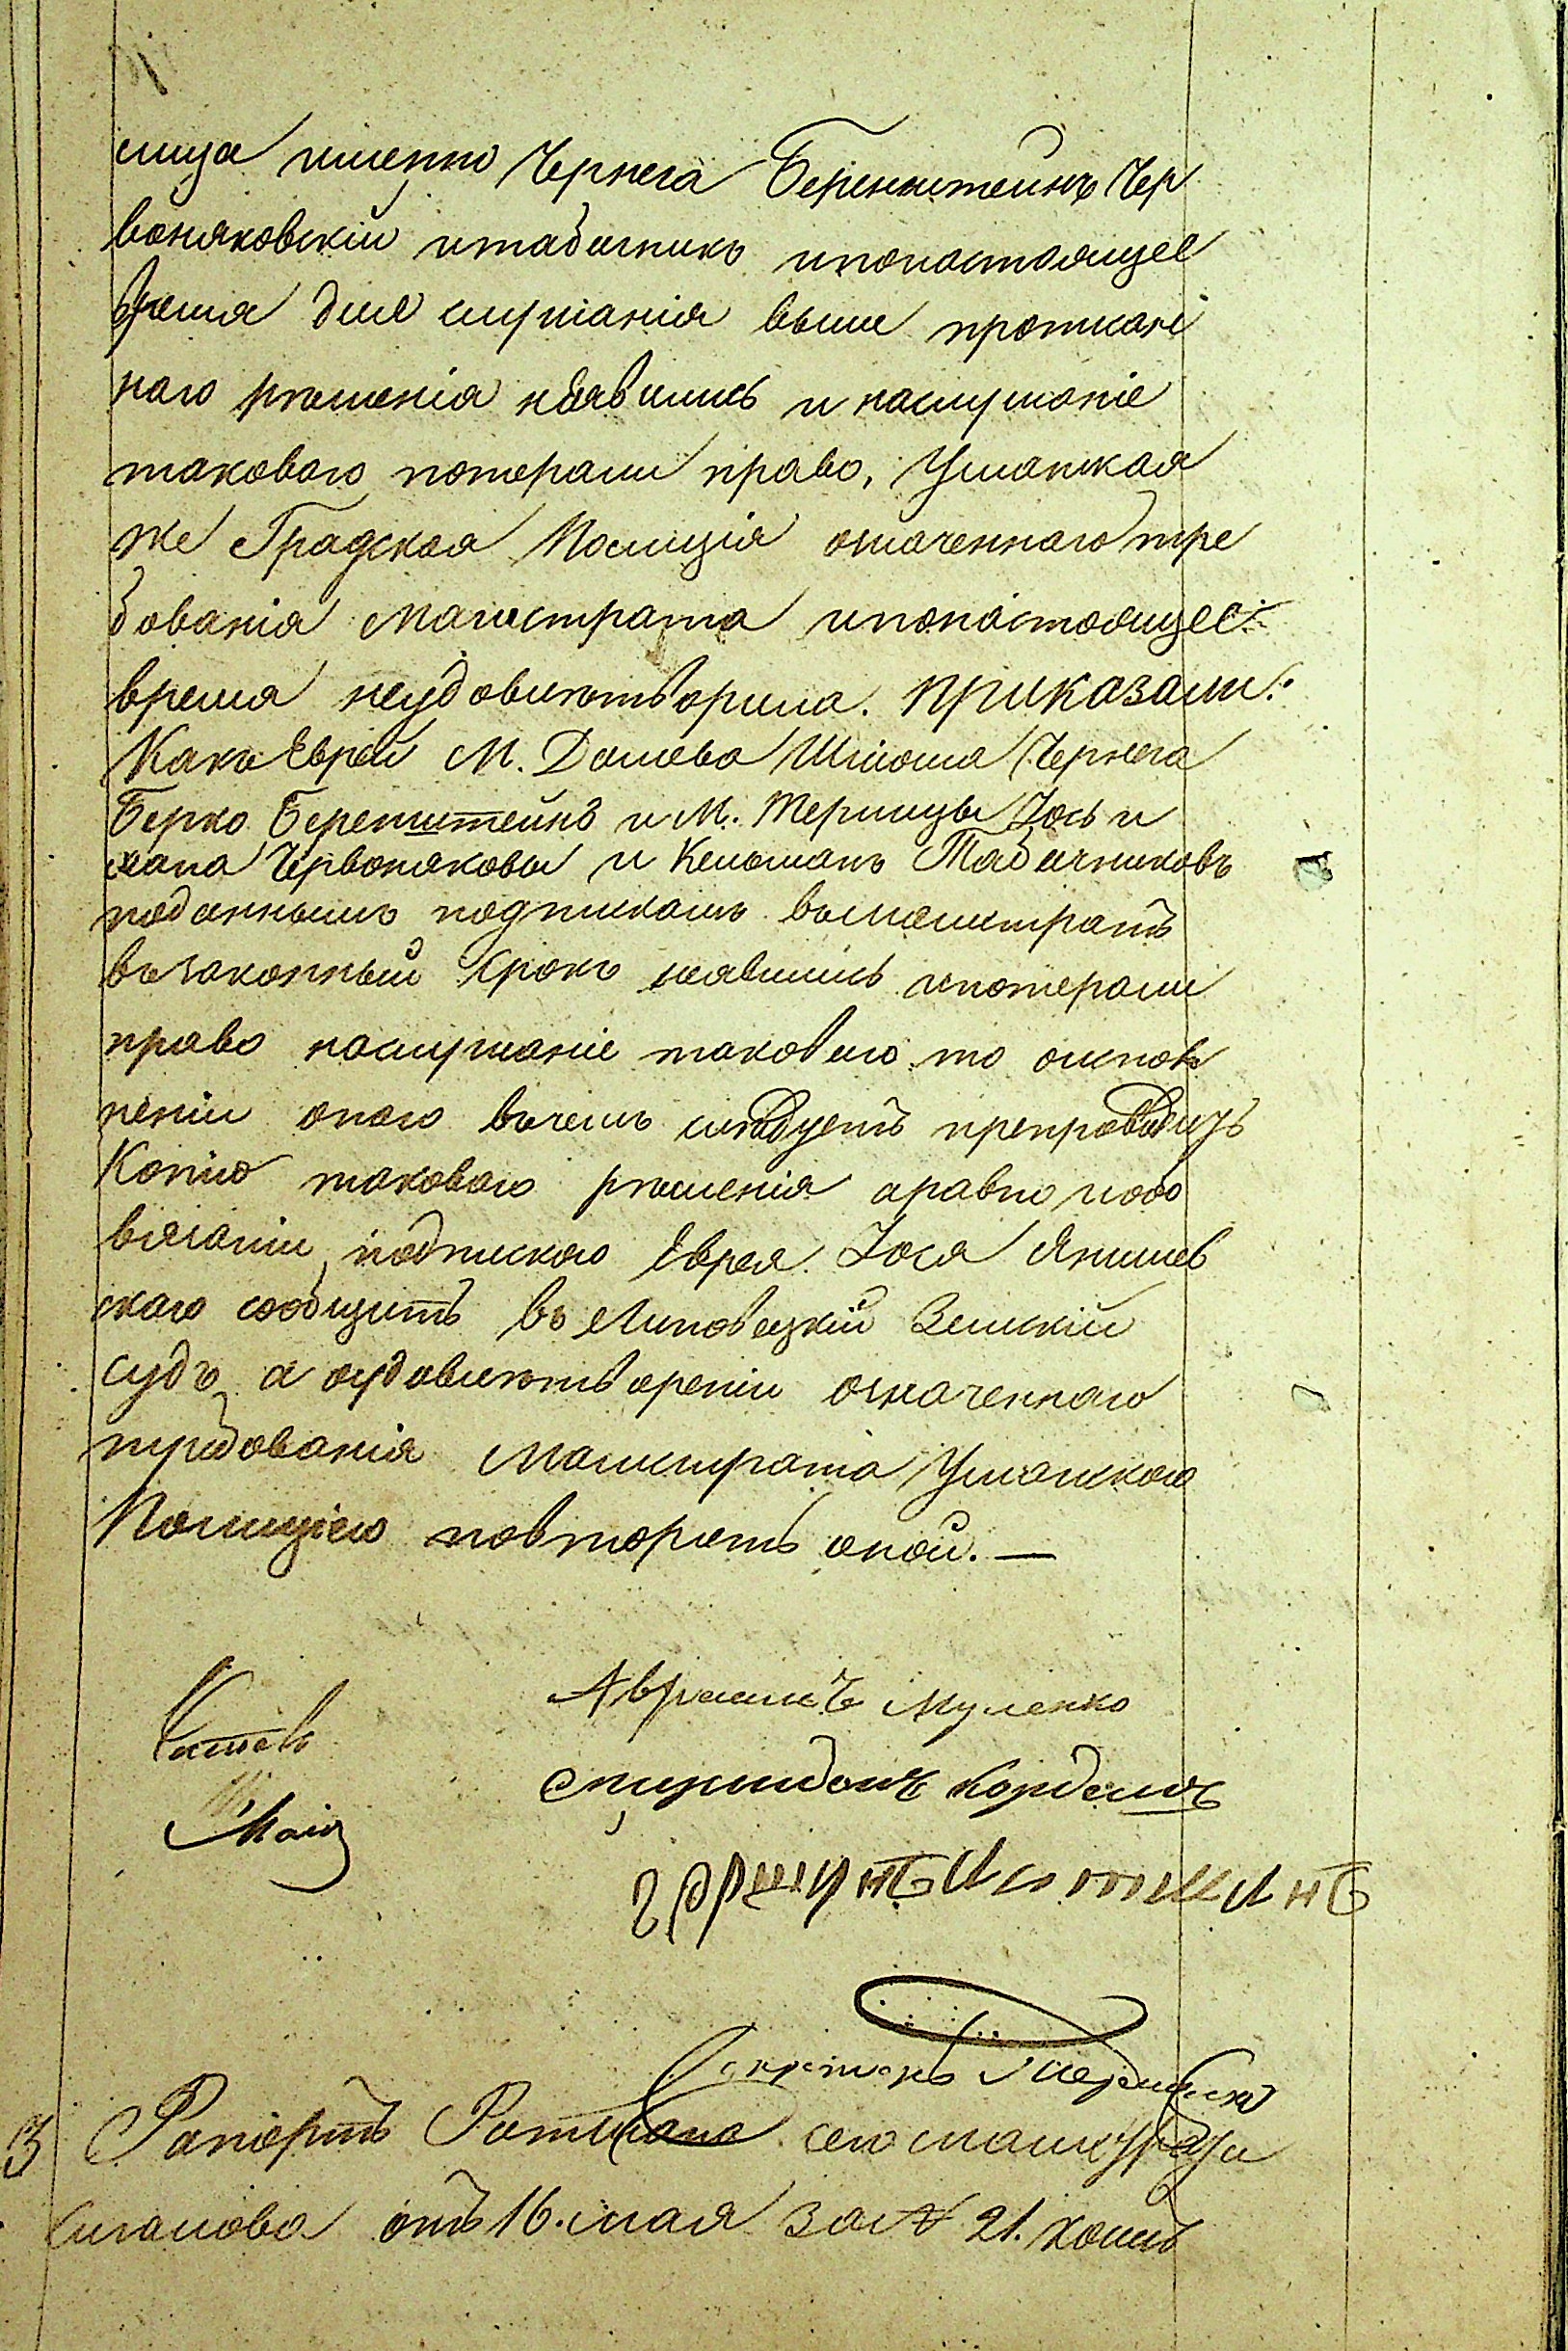 лица именно Чернега Беренштейнъ Чер
воняковскій итабачникъ ипонастоящее
время для слушанія выше прописан
наго рѣшенія неявились и наслушаніе
таковаго потеряли право, Уманская
же Градская Полиція означеннаго тре
бованія Магистрата ипонастоящее
время неудовлетворила. Приказали:
Какъ Евреи М. Дашева Шлiома Чернега
Берко Беренштейнъ и М. Терлицы Іось и
хана Червоняковы и Кельманъ Табачниковъ
поданнымъ подпискамъ вмагистратъ
взаконный срокъ неявились ипотеряли
право наслушаніе таковаго то оиспол
неніи онаго вчемъ слѣдуетъ препроводивъ
Копію таковаго рѣшенія аравно иобо
вязаніи подпискою Еврея Іося Янишев
скаго сообщить въ Липовецкій Земскій
судъ, а оудовлетвореніи означеннаго
требованія Магистрата Уманскою
Полиціею повторить оной. —
Авраамъ Муленко
Спиридонъ
Маія
Секретарь
3 Рапортъ Ратмана сего магистрата
отъ 16. мая за № 21. коимъ